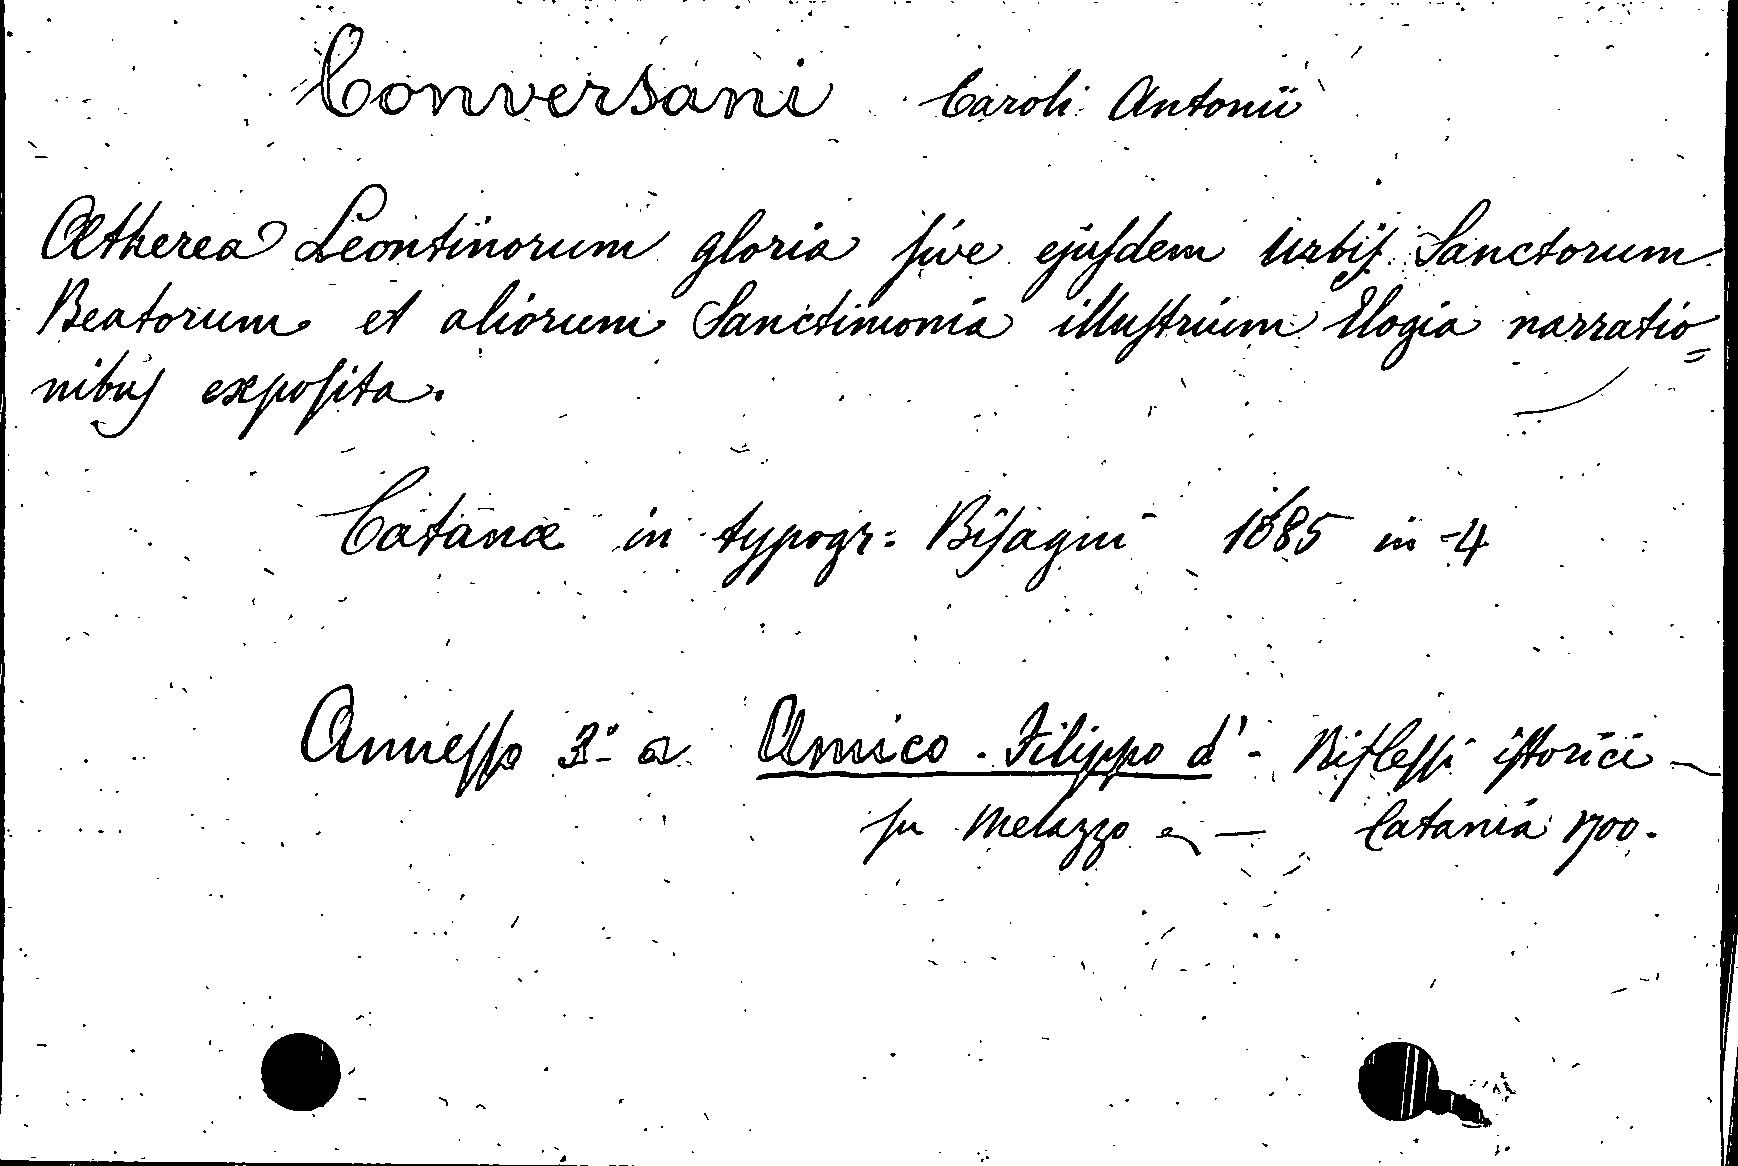 Conversani Caroli Antonii
Ætherea Leontinorum gloria sive ejusdem Urbis Sanctorum
Beatorum et aliorum Sanctimonia illustrium Elogia narratio=
nibus exposita.
Catanæ in typogr: Bisagni 1685 in-4
Annesso 3.º a Amico. Filippo d' - Riflessi istorici —
su Melazzo — Catania 1700.